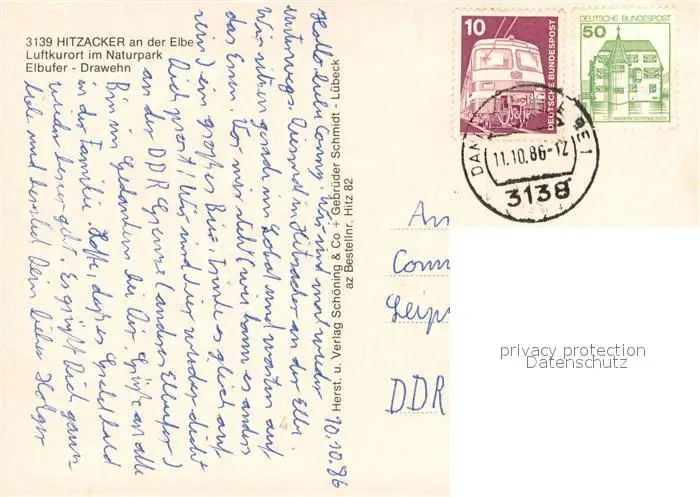 3139 HITZACKER an der Elbe
Luftkurort im Naturpark
Elbufer - Drawehn
10.10.86
Hallo liebe Conny. Wir sind mal wieder
unterwegs. Diesmal in Hitzacker an der Elbe.
Wir sitzen gerade im Lokal und warten auf
das Essen. Vor mir steht (wie kann es anders
sein) ein großes Bier, trinke es gleich auf
Dich prost! Wir sind hier wieder dicht
an der DDR Grenze (anderes Elbufer)
Bin in Gedanken bei Dir. Grüße an alle
in der Familie. Hoffe, daß es bald
wieder besser geht. Es grüßt Dich ganz
lieb und herzlich Dein lieber Holger
Herst. u. Verlag Schöning & Co + Gebrüder Schmidt - Lübeck
az Bestellnr. Hitz 82
10
DEUTSCHE BUNDESPOST
DEUTSCHE BUNDESPOST
50
WASSERSCHLOSS INZLINGEN
11.10.86-12
3138
An
Conn
Leip
DDR
privacy protection
Datenschutz